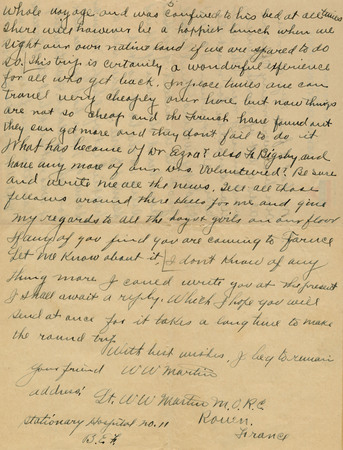 Whole voyage and was confined to his bed at all times
There will however be a happier bunch when we
sight our own native land if we are spared to do
so. This trip is certainly a wonderful experience
for all who get back. In peace times one can
travel very cheaply over here but now things
are not so cheap and the French have found out
they can get more and they don't fail to do it
What has became of Dr Ezra? also Fr Bigsby and
have any more of our Drs. Volunteered? Be sure
and write me all the news. Tell all those
fellows around there Hello for me and give
my regards to all the boys & girls on our floor
If any of you find you are coming to France
let me know about it. I don't know of any
thing more I could write you at the present
I shall await a reply. Which I hope you will
send at once for it takes a long time to make
the round trip.
With best wishes, I beg to remain
your friend W W Martin
address:
Lt. W W Martin M.O.R.C
Stationary Hospital no. 11 Rouen.
B.E.F. France